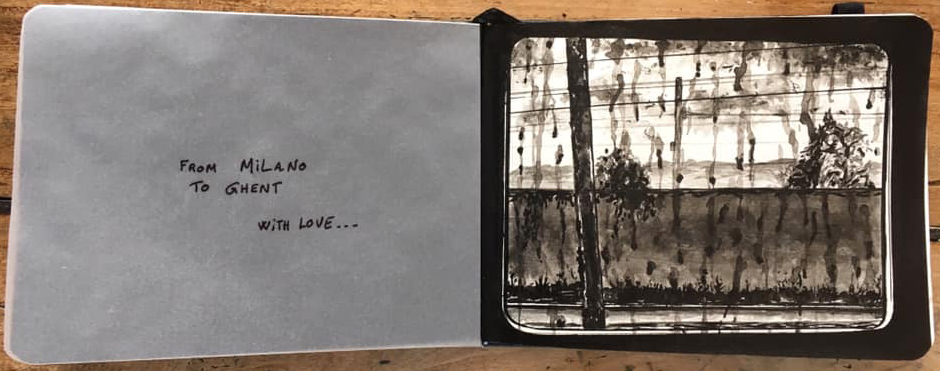 FROM MiLANO
TO GHENT
WiTH LOVE...